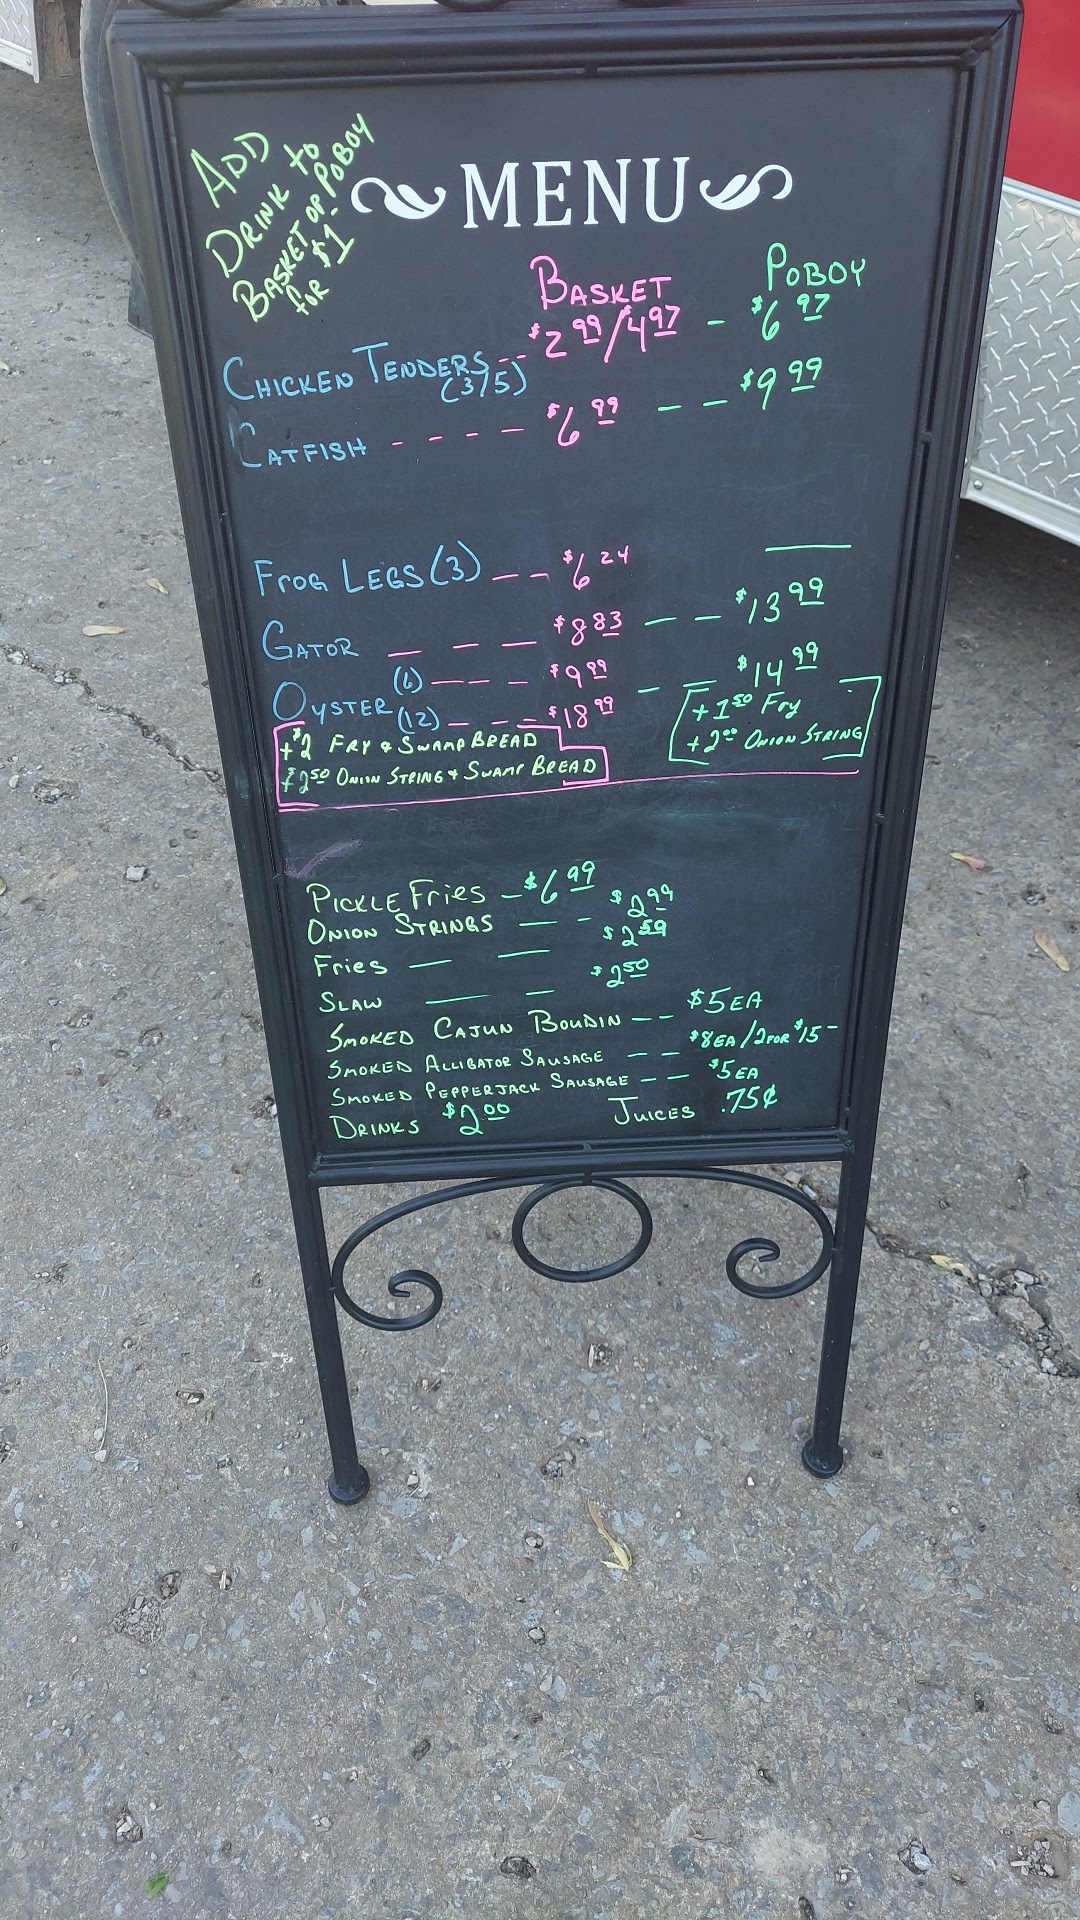 ADD
DRINK to
BASKET or POBOY
for $1-
MENU
BASKET POBOY
CHICKEN TENDERS -- $2 99/$4 97 - $6 97
(3/5)
CATFISH - - - - $6 99 - - $9 99
FROG LEGS (3) -- $6 24 —
GATOR — — — $8 83 — — $13 99
OYSTER (6) — - - - $9 99 - — $14 99
(12) — - - $18 99
+$2 FRY & SWAMP BREAD
+$2 50 ONION STRING & SWAMP BREAD
+1 50 Fry
+2 00 ONION STRING
PICKLE Fries - $6 99
ONION STRINGS — - $2 99
Fries — — $2 50
SLAW — - $2 50
SMOKED CAJUN BOUDIN -- $5 EA
SMOKED ALLIGATOR SAUSAGE - - $8 EA/2 FOR $15-
SMOKED PEPPERJACK SAUSAGE - - $5 EA
DRINKS $2 00 JUICES .75¢